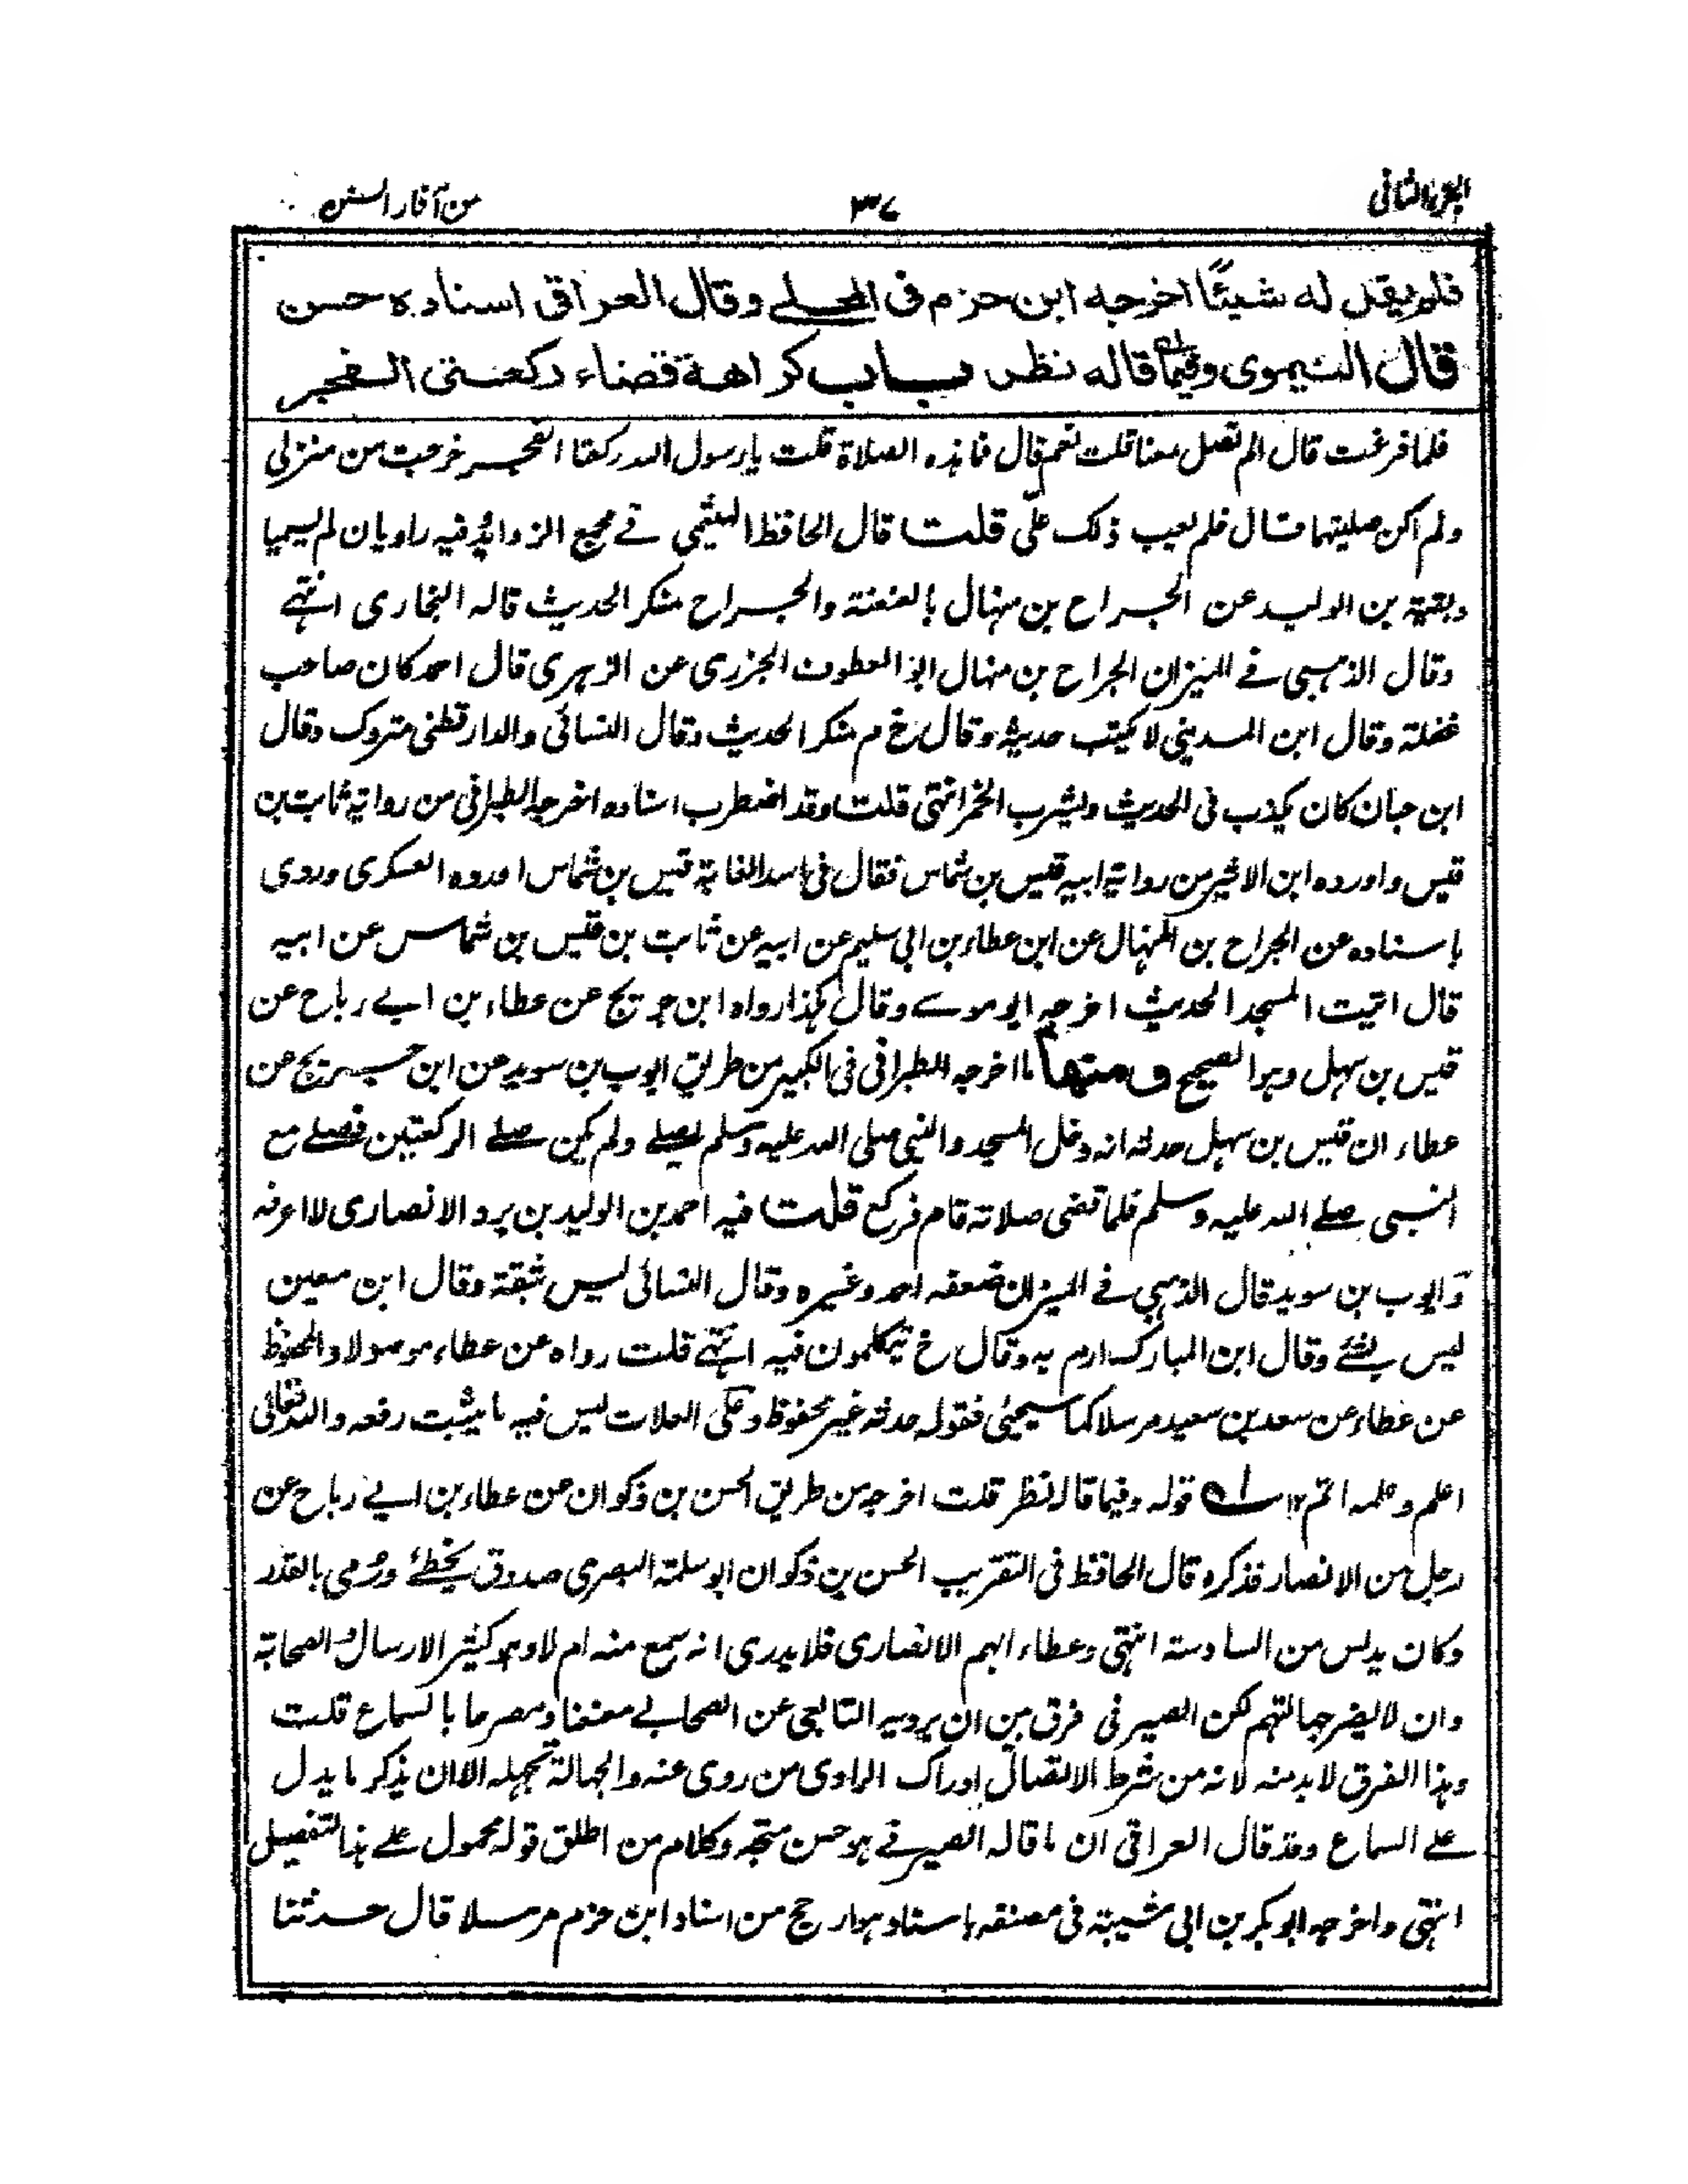 الجزء الثانی
٣٧
من آثار السنن
فلم يقل له شيئًا اخرجه ابن حزم فی المحلے وقال العراقی اسناده حسن
قال النيموی وفيما قاله نظر باب كراهة قضاء ركعتی الفجر
فلما فرغت قال الم تصل معنا قلت نعم قال فما هذه الصلاة قلت يا رسول الله ركعتا الفجر خرجت من منزلی
ولم اكن صليتهما قال فلم يعب ذلك علیّ قلت قال الحافظ الهيثمی فے مجمع الزوائد وفيه راويان لم يسميا
وبقية بن الوليد عن الجراح بن منهال بالعنعنة والجراح منكر الحديث قاله البخاری انتهے
وقال الذهبی فے الميزان الجراح بن منهال ابو العطوف الجزری عن الزهری قال احمد كان صاحب
غفلة وقال ابن المدينی لا يكتب حديثه وقال خ م منكر الحديث وقال النسائی والدارقطنی متروك وقال
ابن حبان كان يكذب فی الحديث ويشرب الخمر انتهی قلت وقد اضطرب اسناده اخرجه الطبرانی من رواية ثابت بن
قيس واورده ابن الاثير من رواية ابيه قيس بن شماس فقال فی اسد الغابة قيس بن شماس اورده العسكری وروی
باسناده عن الجراح بن المنهال عن ابن عطاء بن ابی سليم عن ابيه عن ثابت بن قيس بن شماس عن ابيه
قال اتيت المسجد الحديث اخرجه ابو موسے وقال هكذا رواه ابن جريج عن عطاء بن ابے رباح عن
قيس بن سهل وهو الصحيح ومنها ما اخرجه الطبرانی فی الكبير من طريق ايوب بن سويد عن ابن جريج عن
عطاء ان قيس بن سهل حدثه انه دخل المسجد والنبی صلی الله عليه وسلم يصلے ولم يكن صلے الركعتين فصلے مع
النبی صلے الله عليه وسلم فلما قضی صلاته قام فركع قلت فيه احمد بن الوليد بن برد الانصاری لا اعرفه
وايوب بن سويد قال الذهبی فے الميزان ضعفه احمد وغيره وقال النسائی ليس بثقة وقال ابن معين
ليس بشئے وقال ابن المبارك ارم به وقال خ يتكلمون فيه انتهے قلت رواه عن عطاء موصولا والمحفوظ
عن عطاء عن سعد بن سعيد مرسلا كما سيجیئ فقوله حدثه غير محفوظ وعلی العلات ليس فيه ما يثبت رفعه والله تعالی
اعلم وعلمه اتم ١٢ ك قوله وفيما قاله نظر قلت اخرجه من طريق الحسن بن ذكوان عن عطاء بن ابے رباح عن
رجل من الانصار فذكره قال الحافظ فی التقريب الحسن بن ذكوان ابو سلمة البصری صدوق يخطئ ورُمی بالقدر
وكان يدلس من السادسة انتهی وعطاء ابهم الانصاری فلا يدری انه سمع منه ام لا وهو كثير الارسال والصحابة
وان لا يضر جهالتهم لكن الصيرفی فرق بين ان يرويه التابعی عن الصحابے معنعنا ومصرحا بالسماع قلت
وهذا الفرق لابد منه لانه من شرط الاتصال ادراك الراوی من روی عنه والجهالة تجهله الا ان يذكر ما يدل
علے السماع وقد قال العراقی ان ما قاله الصيرفے هو حسن متجه وكلام من اطلق قوله محمول علے هذا التفصيل
انتهی واخرجه ابو بكر بن ابی شيبة فی مصنفه باسناد هو ارجح من اسناد ابن حزم مرسلا قال حدثنا